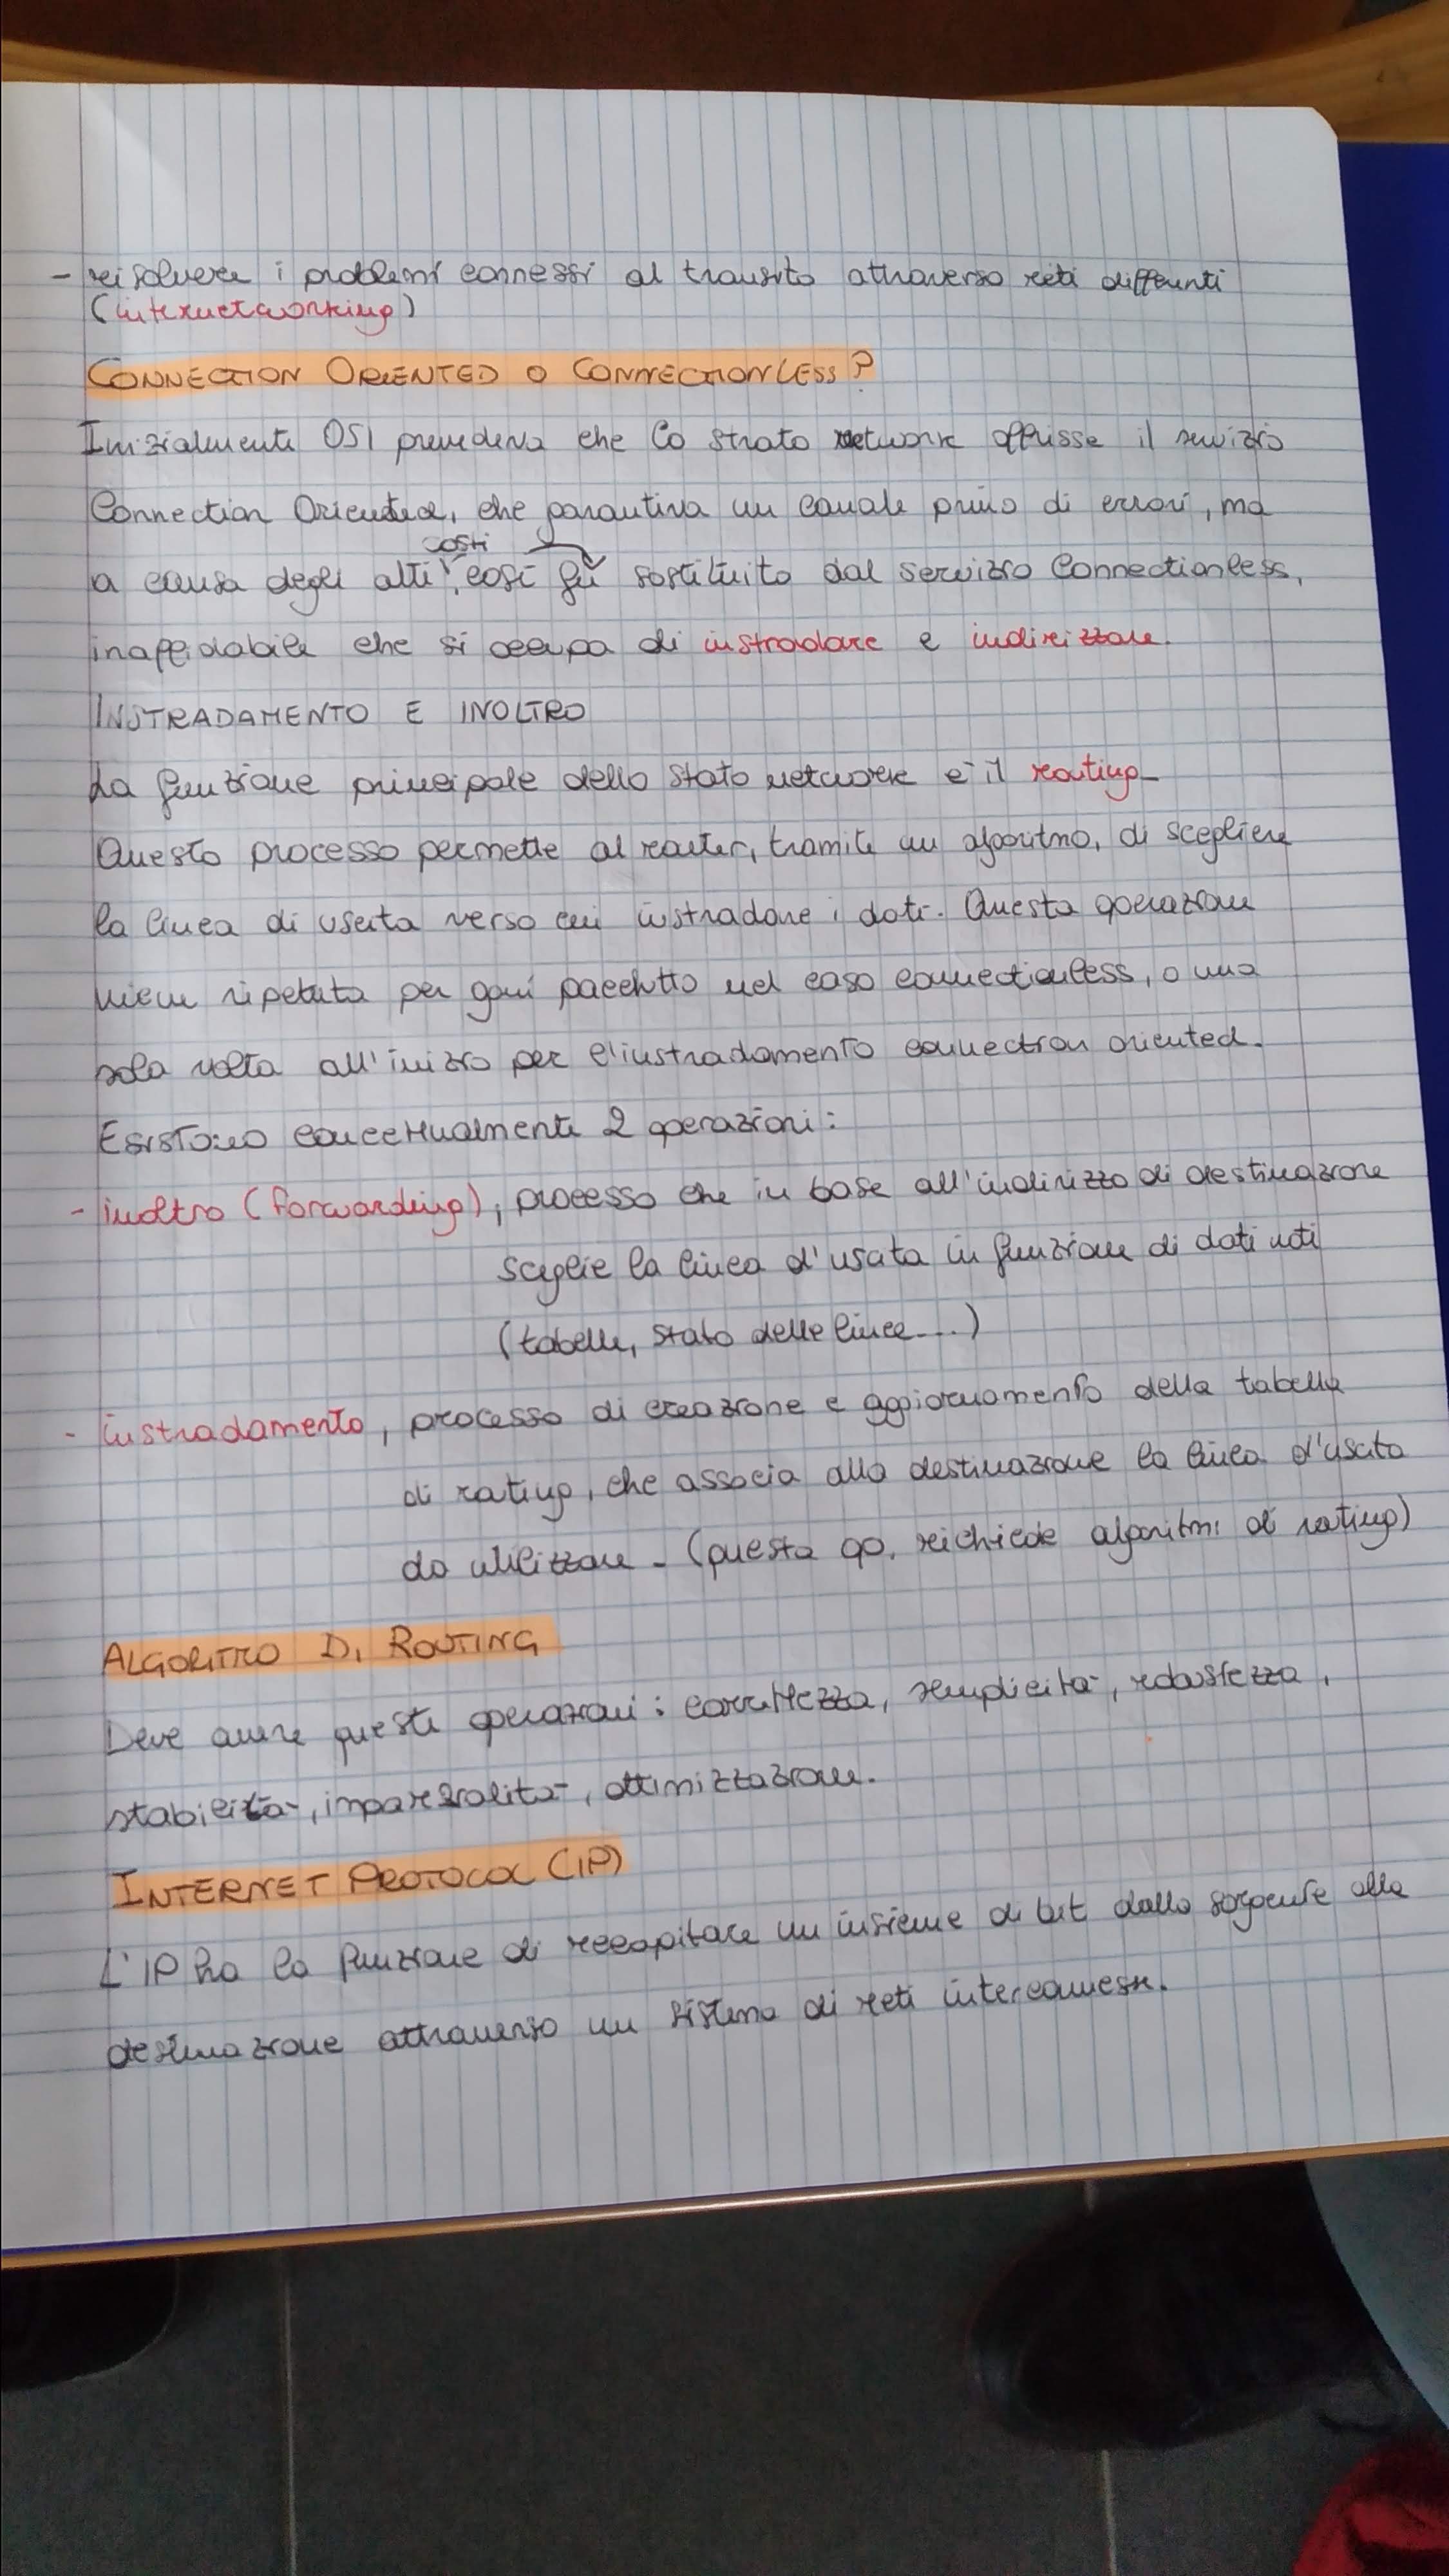 - risolvere i problemi connessi al transito attraverso reti differenti
(internetworking)
CONNECTION ORIENTED O CONNECTIONLESS?
Inizialmente OSI prevedeva che lo strato network offrisse il servizio
Connection Oriented, che garantiva un canale privo di errori, ma
costi
a causa degli alti, così fù sostituito dal servizio Connectionless,
inaffidabile che si occupa di instradare e indirizzare.
INSTRADAMENTO E INOLTRO
La funzione principale dello stato network è il routing.
Questo processo permette al router, tramite un algoritmo, di scegliere
la linea di uscita verso cui instradare i dati. Questa operazione
viene ripetuta per ogni pacchetto nel caso connectionless, o una
sola volta all'inizio per l'instradamento connection oriented.
Esistono concettualmente 2 operazioni:
- inoltro (forwarding), processo che in base all'indirizzo di destinazione
sceglie la linea d'uscita in funzione di dati noti
(tabelle, stato delle linee...)
- instradamento, processo di creazione e aggiornamento della tabella
di rating, che associa alla destinazione la linea d'uscita
da utilizzare. (questa op. richiede algoritmi di rating)
ALGORITMO DI ROUTING
Deve avere queste operazioni: correttezza, semplicità, robustezza,
stabilità, imparzialità, ottimizzazione.
INTERNET PROTOCOL (IP)
L'IP ha la funzione di recapitare un insieme di bit dalla sorgente alla
destinazione attraverso un sistema di reti interconnesse.